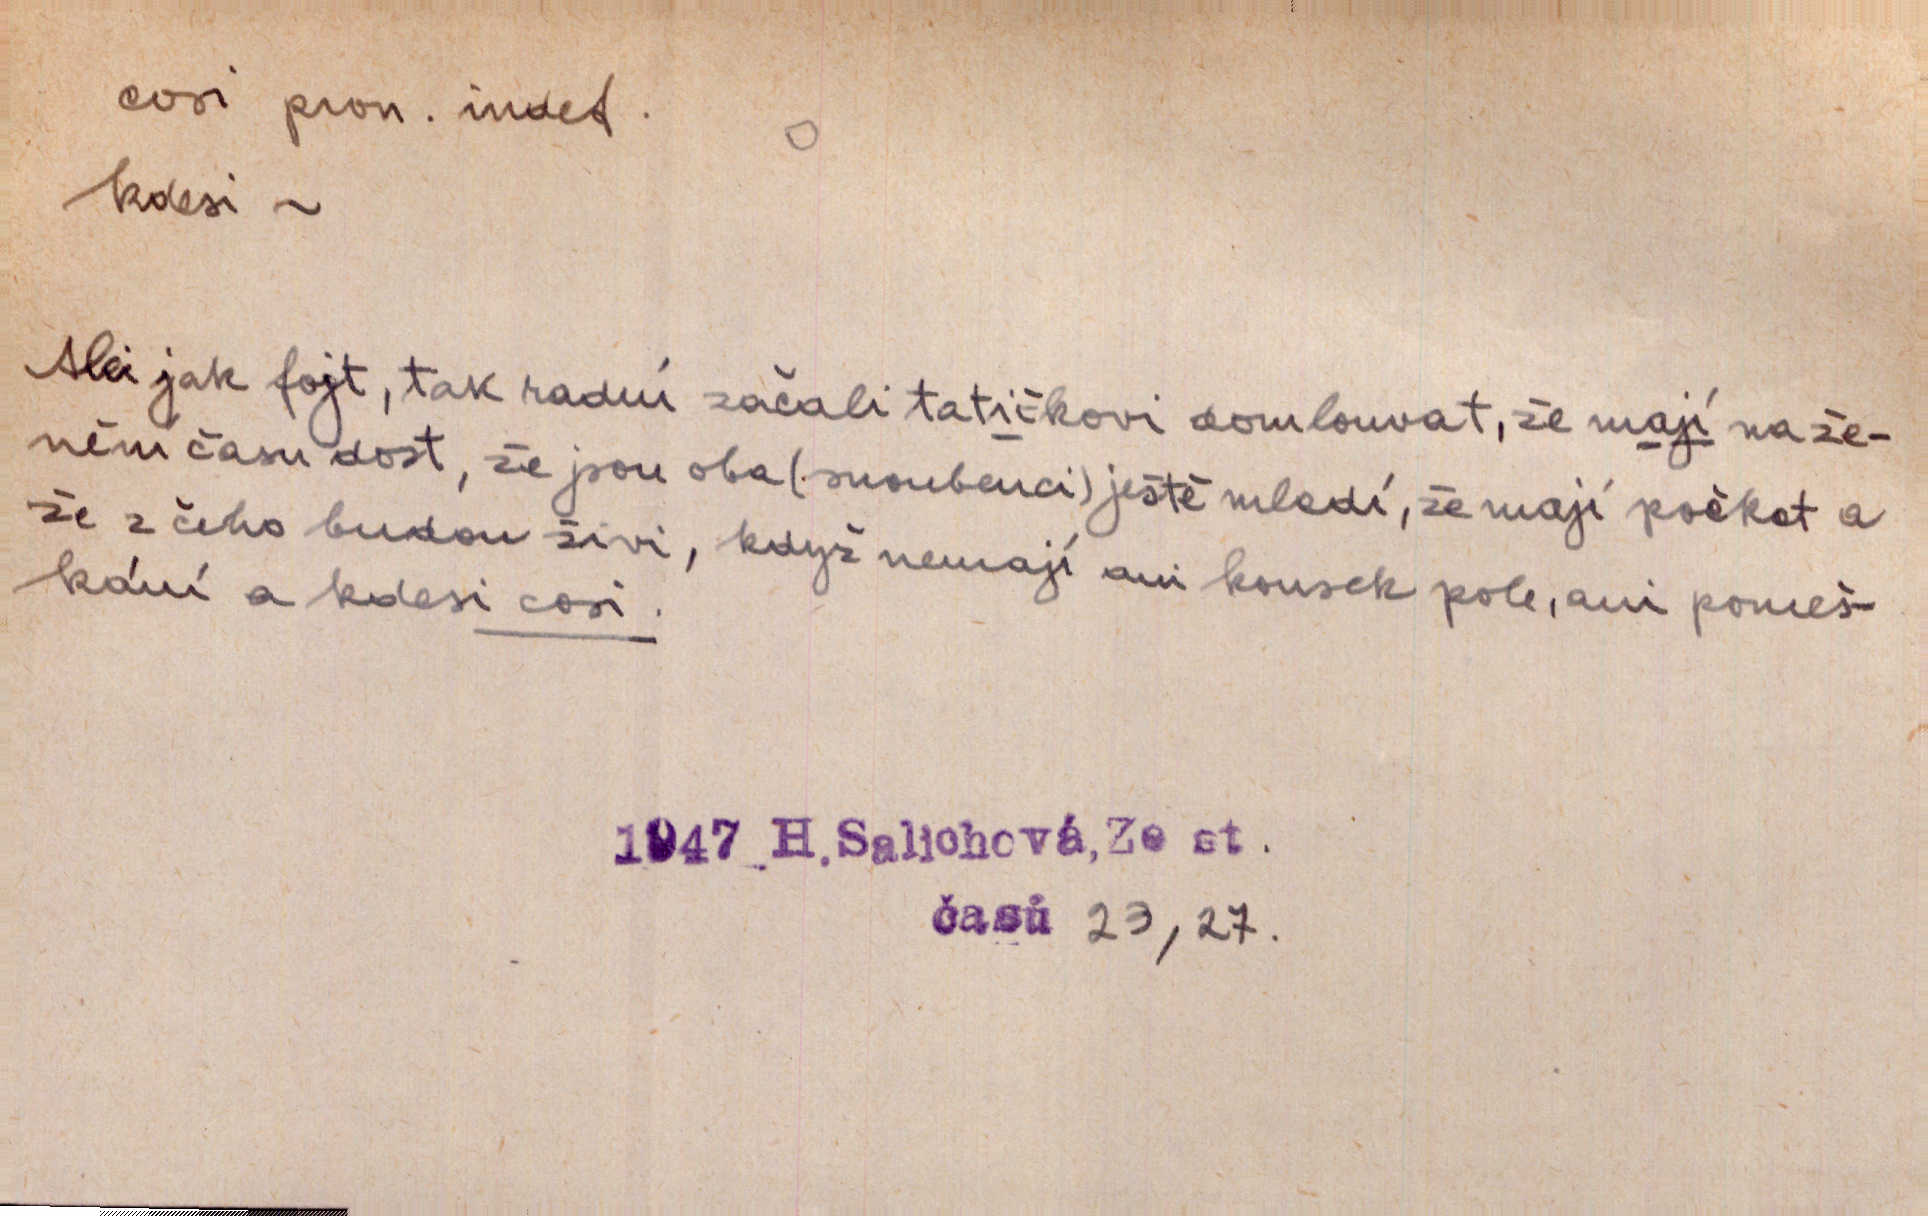 cosi pron. indef.
kdesi ~
Ale jak fojt, tak radní začali tatíčkovi domlouvat, že mají na že-
něni času dost, že jsou oba (snoubenci) ještě mladí, že mají počkat a
že z čeho budou živi, když nemají ani kousek pole, ani pomeš-
kání a kdesi cosi.
1947 H. Salichová, Ze st.
časů 23, 27.